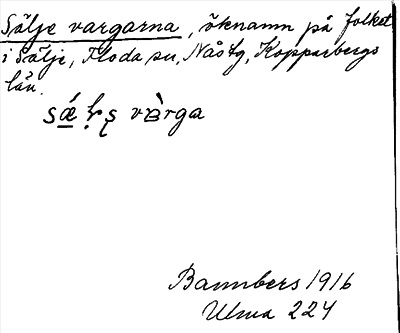 Sälje vargarna, öknamn på folket
i Sälje, Floda sn, Nåstg, Kopparbergs
län.
varga
Bannbers 1916
Ulma 224